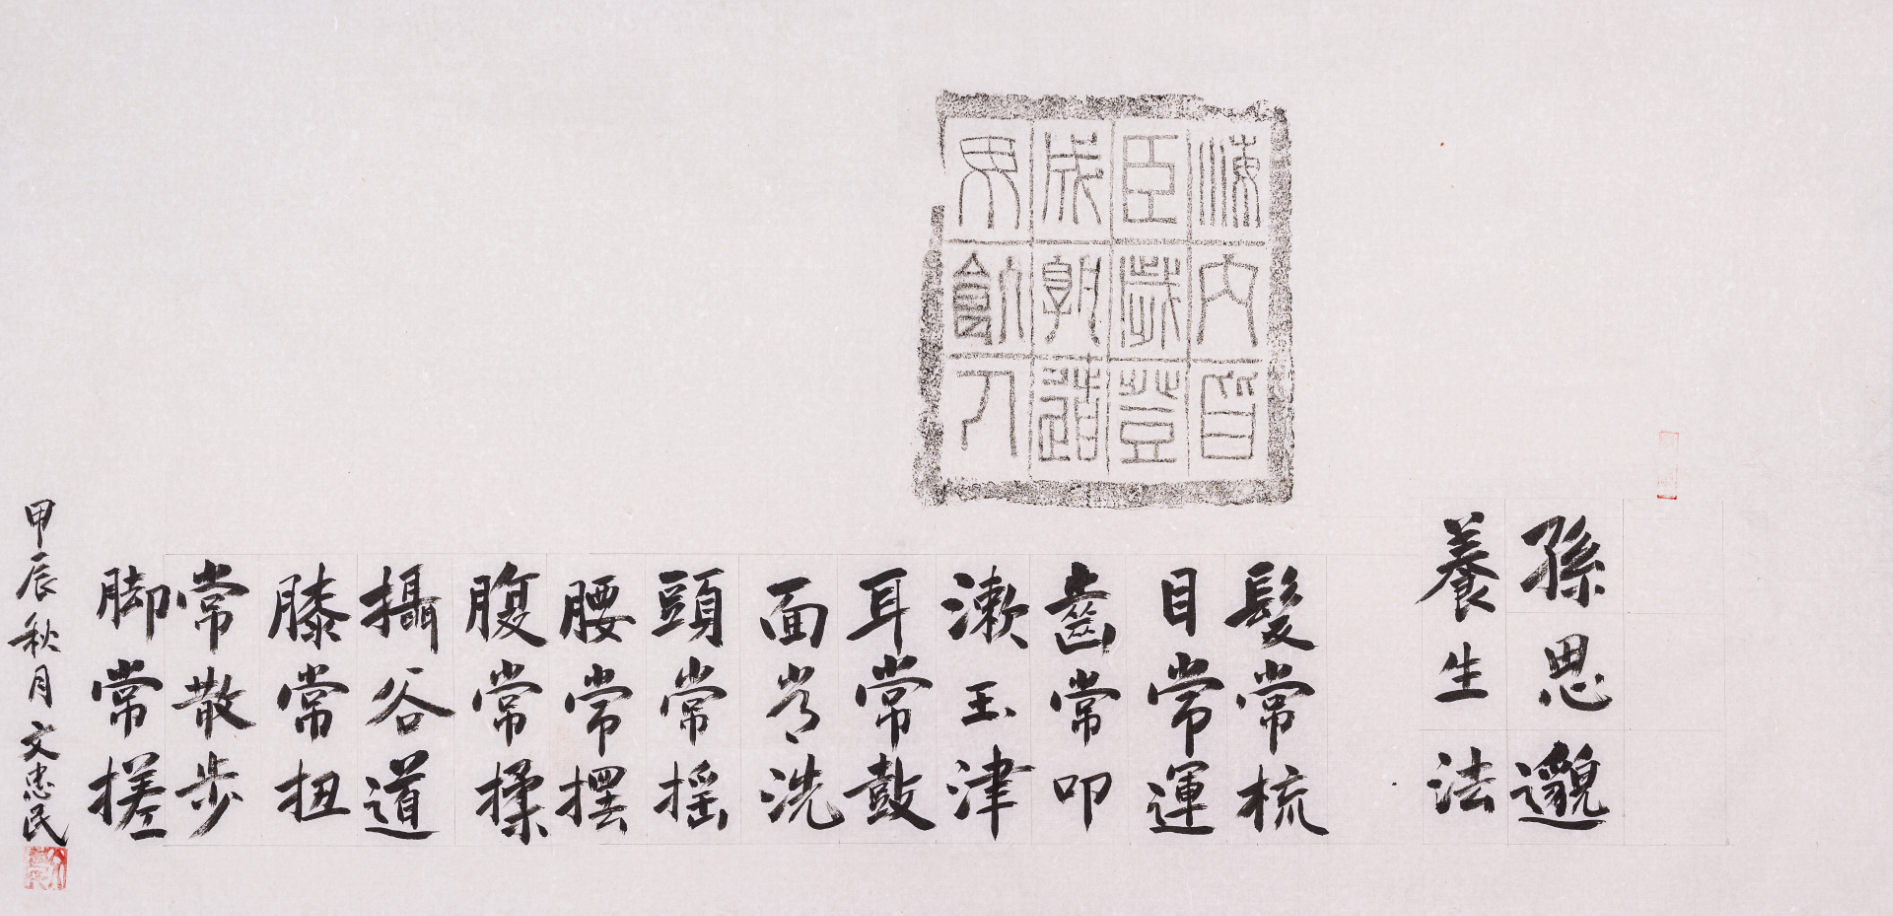 海內皆
臣歲登
成孰道
毋飢人
孫思邈
養生法
髮常梳
目常運
齒常叩
漱玉津
耳常鼓
面常洗
頭常摇
腰常擺
腹常揉
攝谷道
膝常扭
常散步
脚常搓
甲辰秋月文忠民